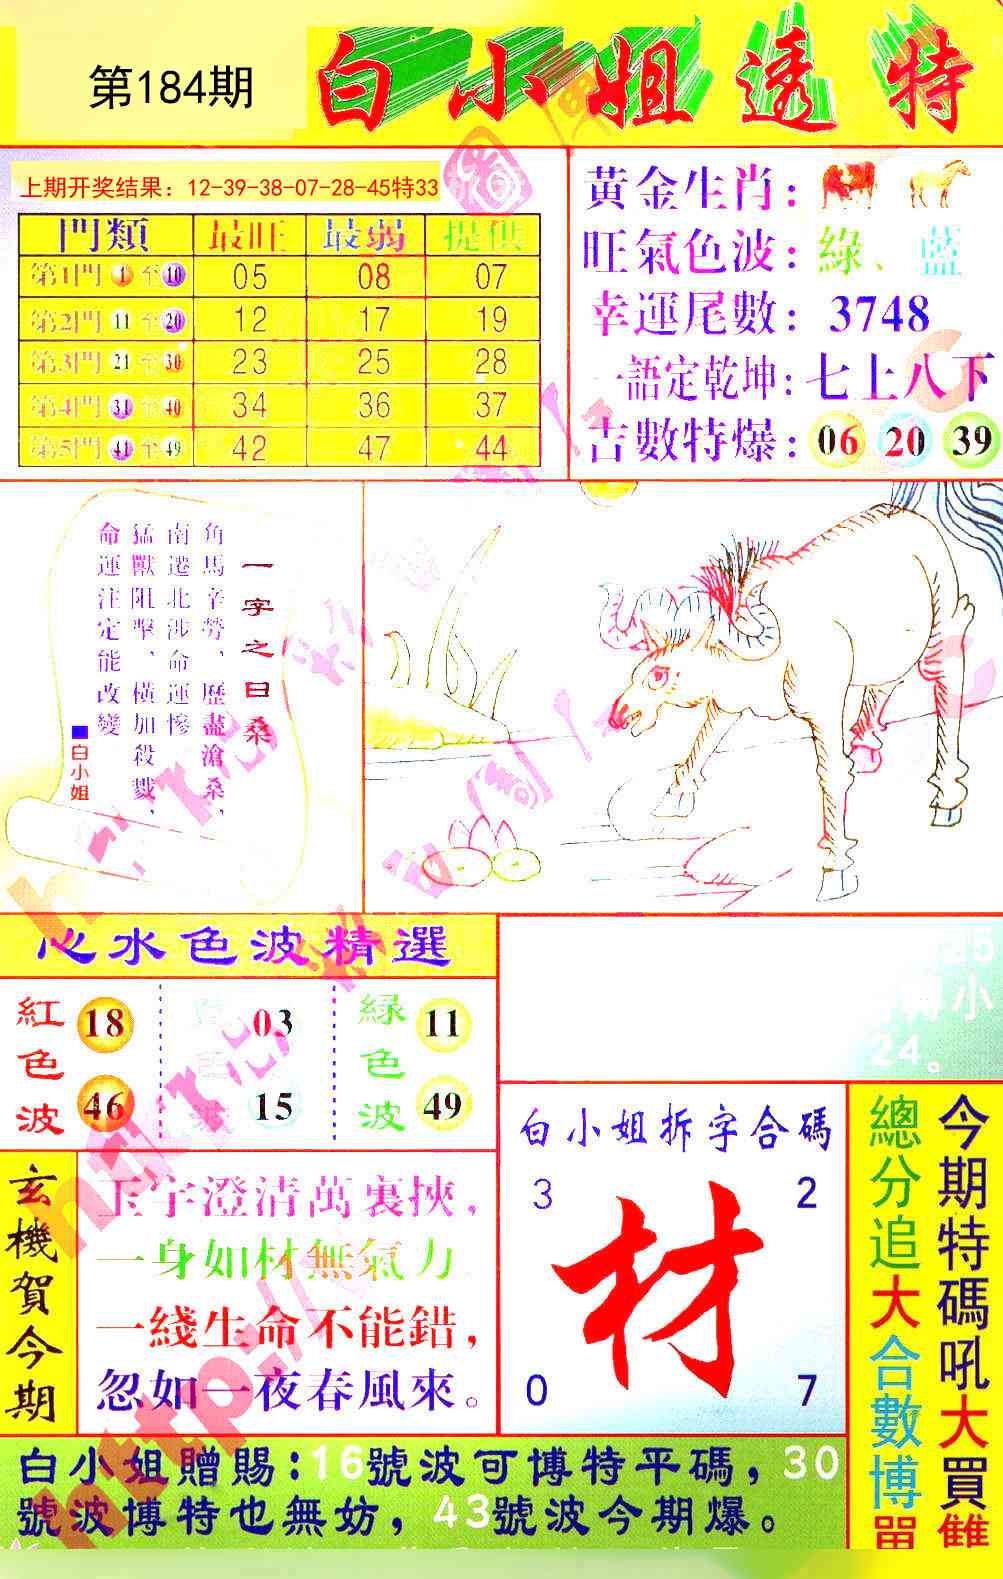 第184期
白小姐透特
上期开奖结果：12-39-38-07-28-45特33
門類 最旺 最弱 提供
第1門 1 至 10 05 08 07
第2門 11 至 20 12 17 19
第3門 21 至 30 23 25 28
第4門 31 至 40 34 36 37
第5門 41 至 49 42 47 44
黄金生肖：
旺氣色波：綠、藍
幸運尾數：3748
一語定乾坤：七上八下
吉數特爆：06 20 39
一字之曰桑
角馬辛勞、歷盡滄桑，
南遷北涉命運慘
猛獸阻擊、橫加殺戮，
命運注定能改變
■白小姐
心水色波精選
紅色波 18 46
03 15
緑色波 11 49
25
小
24。
玄機賀今期
玉宇澄清萬裏挾，
一身如材無氣力
一綫生命不能錯，
忽如一夜春風來。
白小姐拆字合碼
3 2
材
0 7
今期特碼吼大買雙
總分追大合數博單
白小姐贈賜：16號波可博特平碼，30
號波博特也無妨，43號波今期爆。